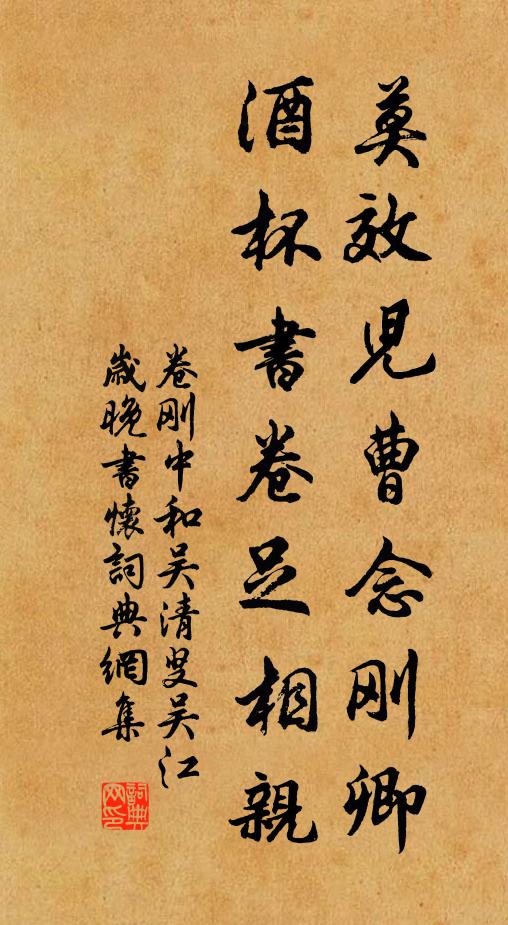 莫效児曹念刚卿
酒杯書卷足相親
卷刚中和吴清叟吴江
歲晚書懷詞典網集
詞典网印